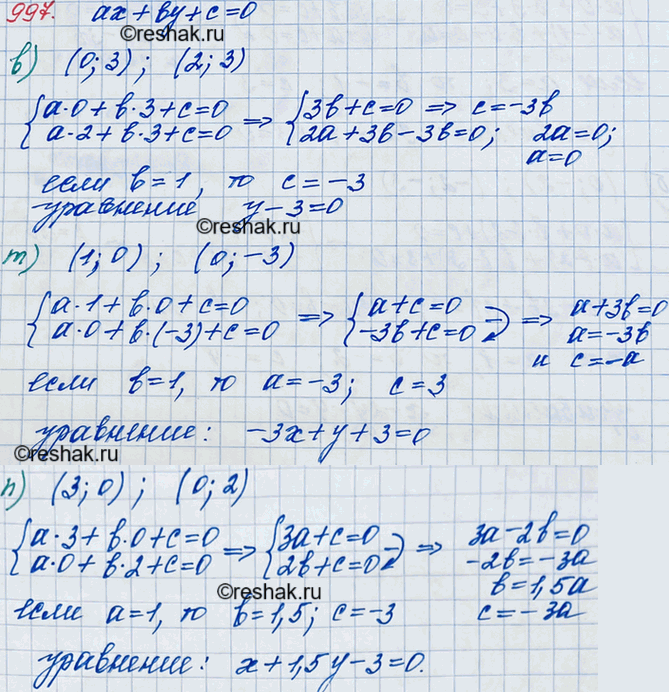 997. ax + by + c = 0
©reshak.ru
в) (0; 3) ; (2; 3)
{a·0 + b·3 + c = 0 => {3b + c = 0 => c = -3b
a·2 + b·3 + c = 0 2a + 3b - 3b = 0; 2a = 0;
a = 0
если b = 1, то c = -3
уравнение y - 3 = 0
©reshak.ru
m) (1; 0) ; (0; -3)
{a·1 + b·0 + c = 0 => {a + c = 0 => a + 3b = 0
a·0 + b·(-3) + c = 0 -3b + c = 0 a = -3b
и c = -a
если b = 1, то a = -3; c = 3
уравнение: -3x + y + 3 = 0
©reshak.ru
n) (3; 0) ; (0; 2)
{a·3 + b·0 + c = 0 => {3a + c = 0 => 3a - 2b = 0
a·0 + b·2 + c = 0 2b + c = 0 -2b = -3a
b = 1,5a
©reshak.ru
если a = 1, то b = 1,5; c = -3 c = -3a
уравнение: x + 1,5y - 3 = 0.